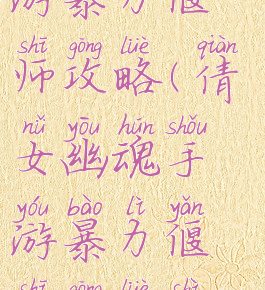 游暴力偃
shī gōng lüè qiàn
师攻略(倩
nǚ yōu hún shǒu
女幽魂手
yóu bào lì yǎn
游暴力偃
shī gōng lüè shì